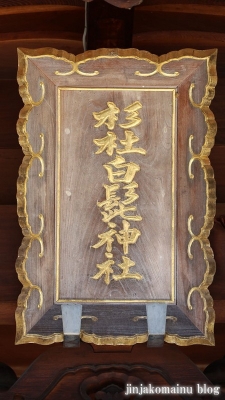 杉社白髭神社
jinjakomainu blog